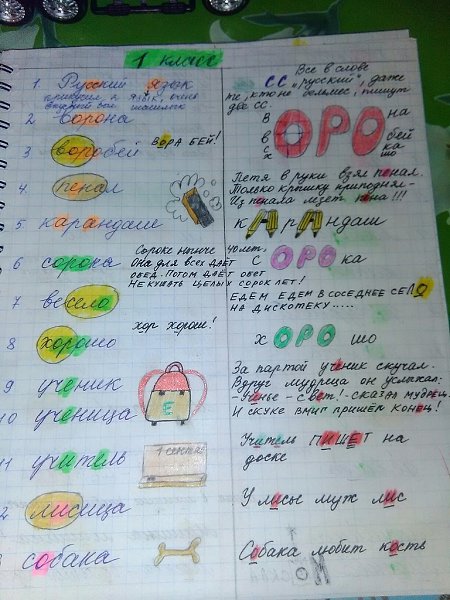 1 класс
1. Русский язык
2 ворона
3 воробей ВОРА БЕЙ!
4. пенал
5 карандаш
6 сорока
Сороке нынче 40 лет.
Она для всех даёт
обед. Потом даёт обет
Не кушать целых сорок лет!
7 весело
8 хорошо хор хорош!
9 ученик
10 ученица
11 учитель 1 сент
2 лисица
собака
Все в слове
СС "русский", даже
те, кто не бельмес, пишут
две СС.
В ОРО на
в бей
с ка
х шо
Петя в руки взял пенал.
Только крышку приподнял -
Из пенала лезет пена!!!
кАрАндаш
С ОРО ка
ЕДЕМ ЕДЕМ В СОСЕДНЕЕ СЕЛО
НА ДИСКОТЕКУ.....
Х ОРО шо
За партой ученик скучал.
Вдруг мудреца он услыхал:
- Ученье - свет! - сказал мудрец.
И скуке вмиг пришёл конец!
Учитель ПИШЕТ на
доске
У лисы муж лис
Собака любит кость